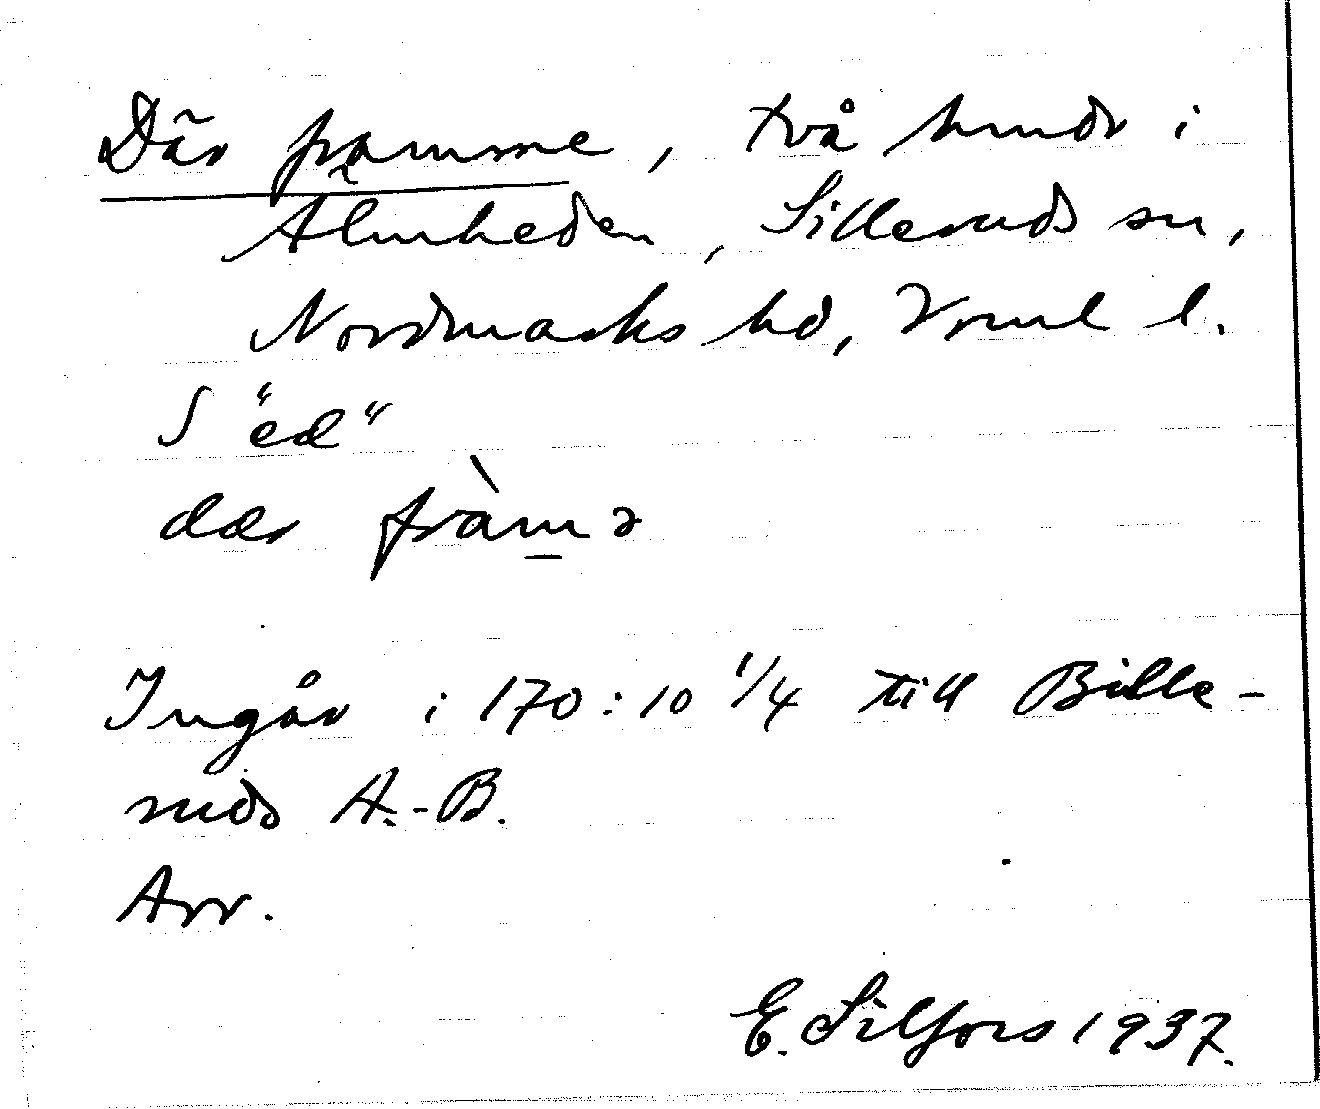 Där framme, två hmdr i
Älmheden, Silleruds sn,
Nordmarks hd, Vrml l.
S "ed"
dær fràmɔ
Ingår i 170:10 1/4 till Bille-
ruds A.-B.
Arr.
E. Silfors 1937.